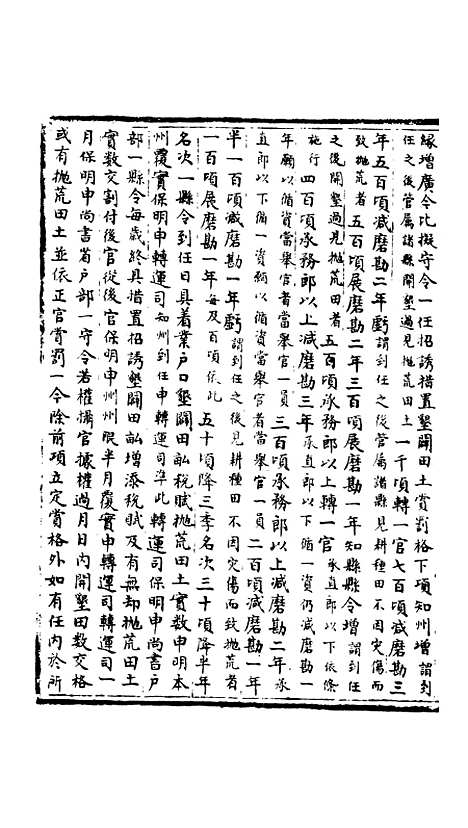 緣增廣今比擬守令一任招誘措置墾闢田土賞罰格下項知州增謂到
任之後管屬諸縣開墾過見抛荒田土一千頃轉一官七百頃减磨勘三
年五百頃减磨勘二年虧謂到任之後管屬諸縣見耕種田不因灾傷而
致抛荒者五百頃展磨勘二年三百頃展磨勘一年知縣縣令增謂到任
之後開墾過見抛荒田者五百頃承務郎以上轉一官承直郎以下依條
施行四百頃承務郎以上减磨勘三年承直郎以下循一資仍减磨勘一
年願以循資當舉官者當舉官一員三百頃承務郎以上减磨勘二年承
直郎以下循一資願以循資當舉官者當舉官一員二百頃减磨勘一年
半一百頃减磨勘一年虧謂到任之後見耕種田不因灾傷而致抛荒者
一百頃展磨勘一年每及百頃依此五十頃降三季名次三十頃降半年
名次一縣令到任日具着業户口墾闢田畝税賦抛荒田土實數申明本
州覆實保明申轉運司知州到任申轉運司凖此轉運司保明申尚書户
部一縣令每歲終具措置招誘墾闢田畝增添税賦及有無却抛荒田土
實數交割付後官從後官保明申州州限半月覆實申轉運司轉運司一
月保明申尚書省户部一守令若權攝官據權過月日内開墾田數交格
或有抛荒田土並依正官賞罰一今除前項立定賞格外如有任内於所